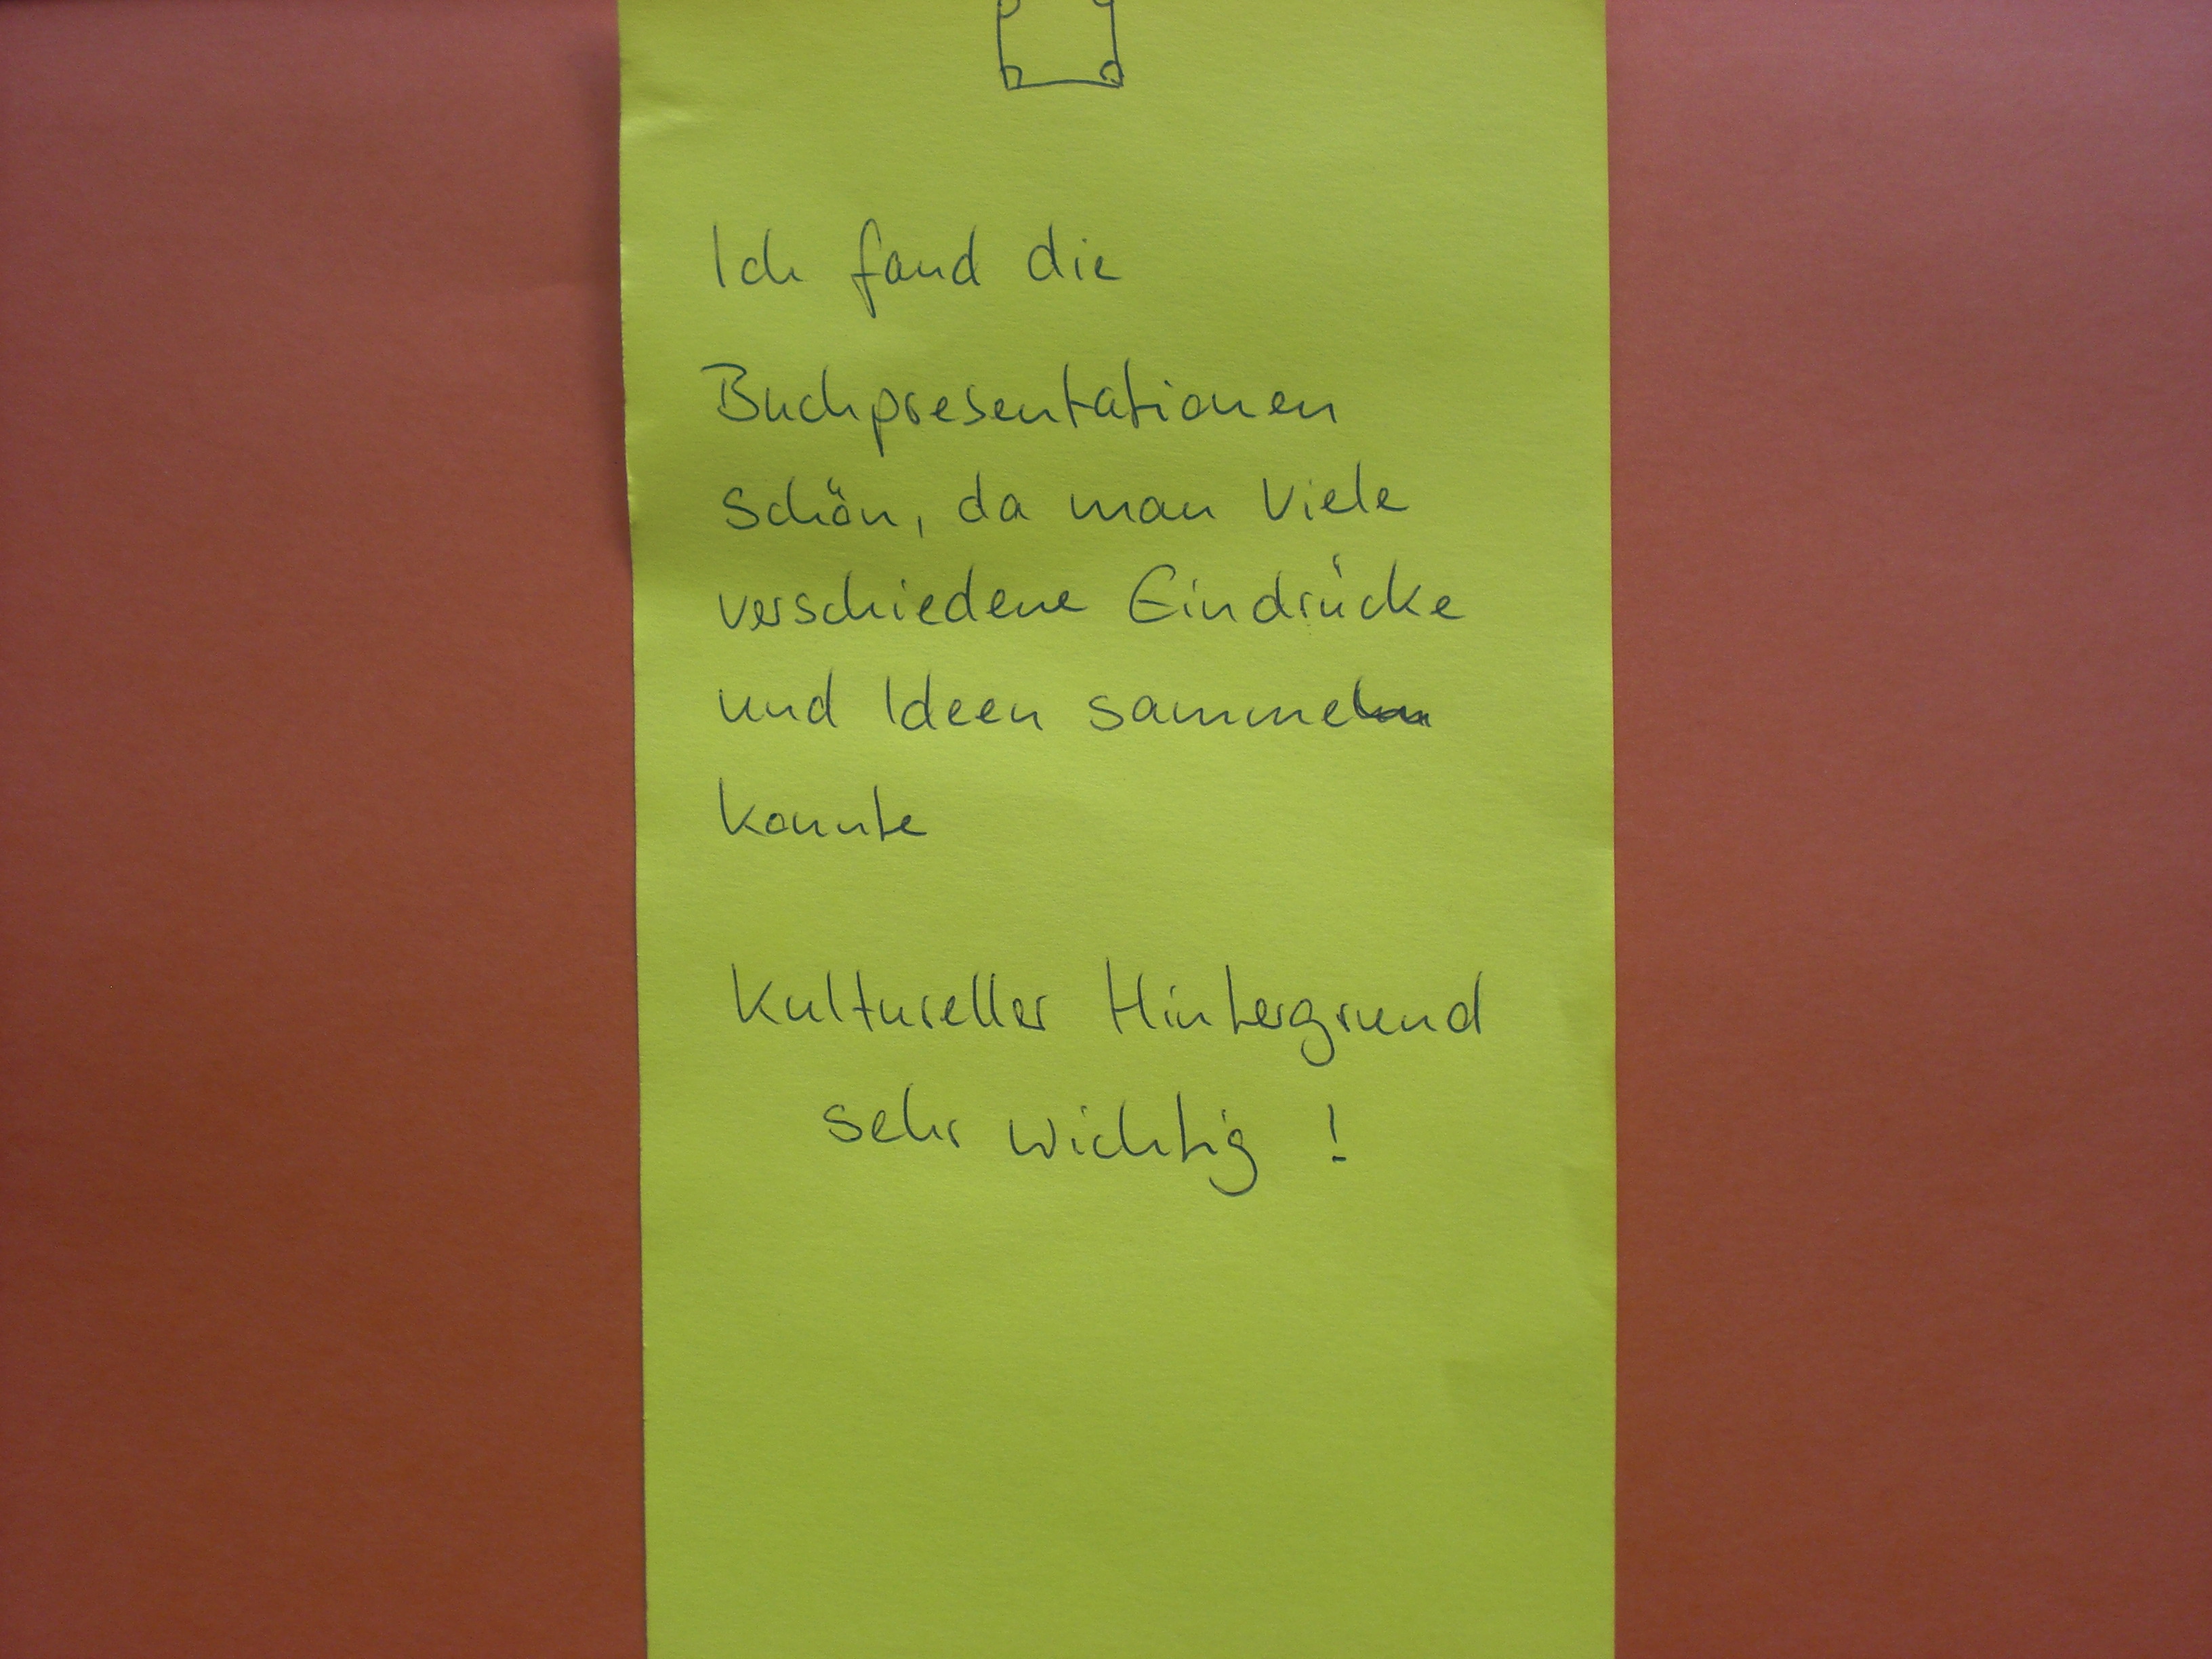 Ich fand die
Buchpresentationen
schön, da man viele
verschiedene Eindrücke
und Ideen sammeln
konnte
Kultureller Hintergrund
sehr wichtig !